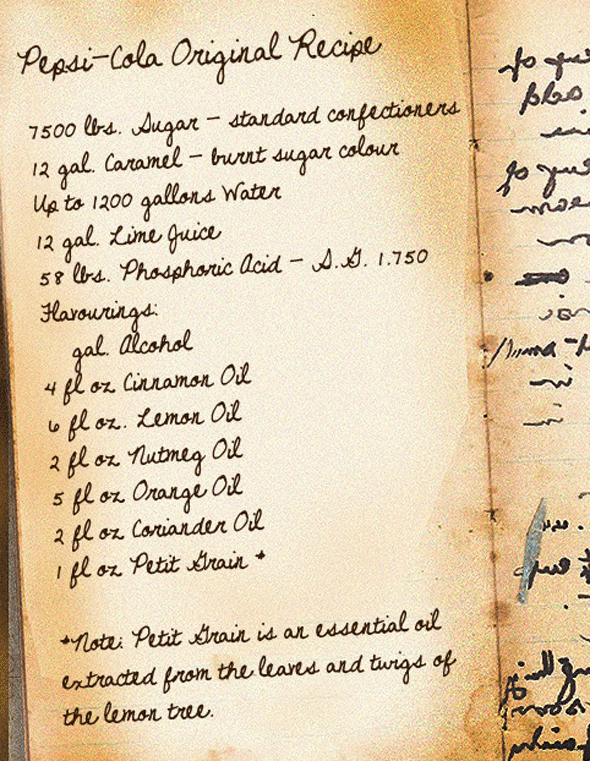 Pepsi-Cola Original Recipe
7500 lbs. Sugar – standard confectioners
12 gal. Caramel – burnt sugar colour
Up to 1200 gallons Water
12 gal. Lime Juice
58 lbs. Phosphoric Acid – S.G. 1.750
Flavourings:
gal. Alcohol
4 fl oz Cinnamon Oil
6 fl oz. Lemon Oil
2 fl oz Nutmeg Oil
5 fl oz Orange Oil
2 fl oz Coriander Oil
1 fl oz Petit Grain *
*Note: Petit Grain is an essential oil
extracted from the leaves and twigs of
the lemon tree.